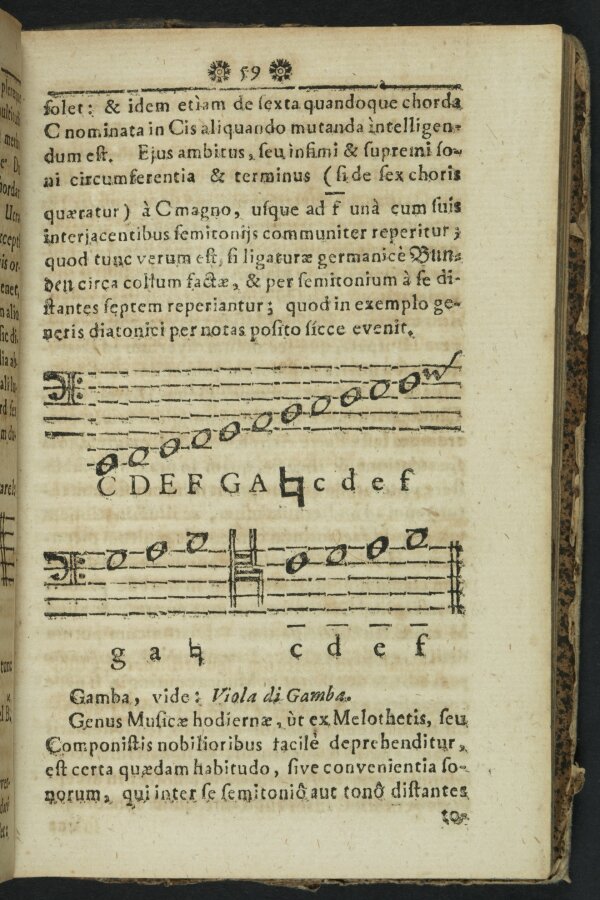 59
solet: & idem etiam de sexta quandoque chorda
C nominata in Cis aliquando mutanda intelligen-
dum est. Ejus ambitus, seu infimi & supremi so-
ni circumferentia & terminus (si de sex choris
quæratur) à C magno, usque ad f̅ unà cum suis
interjacentibus semitonijs communiter reperitur;
quod tunc verum est, si ligaturæ germanicè Bun-
den circa collum factæ, & per semitonium à se di-
stantes septem reperiantur; quod in exemplo ge-
neris diatonici per notas posito sicce evenit.
C D E F G A ♮ c d e f
g a ♮ c̅ d̅ e̅ f̅
Gamba, vide: Viola di Gamba.
Genus Musicæ hodiernæ, ùt ex Melothetis, seu
Componistis nobilioribus facilè deprehenditur,
est certa quædam habitudo, sive convenientia so-
norum, qui inter se semitoniô aut tonô distantes
to-